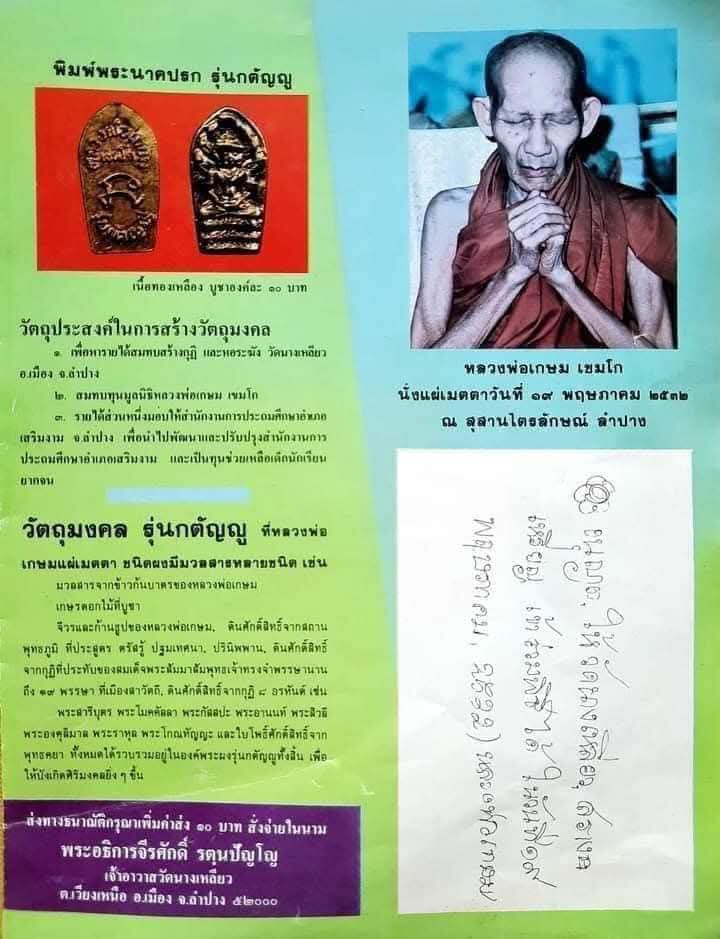 พิมพ์พระนาคปรก รุ่นกตัญญู
เนื้อทองเหลือง บูชาองค์ละ ๑๐ บาท
วัตถุประสงค์ในการสร้างวัตถุมงคล
๑. เพื่อหารายได้สมทบสร้างกุฏิ และหอระฆัง วัดนางเหลียว
อ.เมือง จ.ลำปาง
๒. สมทบทุนมูลนิธิหลวงพ่อเกษม เขมโก
๓. รายได้ส่วนหนึ่งมอบให้สำนักงานการประถมศึกษาอำเภอ
เสริมงาม จ.ลำปาง เพื่อนำไปพัฒนาและปรับปรุงสำนักงานการ
ประถมศึกษาอำเภอเสริมงาม และเป็นทุนช่วยเหลือเด็กนักเรียน
ยากจน
วัตถุมงคล รุ่นกตัญญู ที่หลวงพ่อ
เกษมแผ่เมตตา ชนิดผงมีมวลสารหลายชนิด เช่น
มวลสารจากข้าวก้นบาตรของหลวงพ่อเกษม
เกษรดอกไม้ที่บูชา
จีวรและก้านธูปของหลวงพ่อเกษม, ดินศักดิ์สิทธิ์จากสถาน
พุทธภูมิ ที่ประสูตร ตรัสรู้ ปฐมเทศนา, ปรินิพพาน, ดินศักดิ์สิทธิ์
จากกุฏิที่ประทับของสมเด็จพระสัมมาสัมพุทธเจ้าทรงจำพรรษานาน
ถึง ๑๙ พรรษา ที่เมืองสาวัตถี, ดินศักดิ์สิทธิ์จากกุฏิ ๘ อรหันต์ เช่น
พระสารีบุตร พระโมคคัลลา พระกัสสปะ พระอานนท์ พระสิวลี
พระองคุลิมาล พระราหุล พระโกณทัญญะ และใบโพธิ์ศักดิ์สิทธิ์จาก
พุทธคยา ทั้งหมดได้รวบรวมอยู่ในองค์พระผงรุ่นกตัญญูทั้งสิ้น เพื่อ
ให้บังเกิดศิริมงคลยิ่ง ๆ ขึ้น
ส่งทางธนาณัติกรุณาเพิ่มค่าส่ง ๑๐ บาท สั่งจ่ายในนาม
พระอธิการจีรศักดิ์ รตฺนปัญโญ
เจ้าอาวาสวัดนางเหลียว
ต.เวียงเหนือ อ.เมือง จ.ลำปาง ๕๒๐๐๐
หลวงพ่อเกษม เขมโก
นั่งแผ่เมตตาวันที่ ๑๙ พฤษภาคม ๒๕๓๒
ณ สุสานไตรลักษณ์ ลำปาง